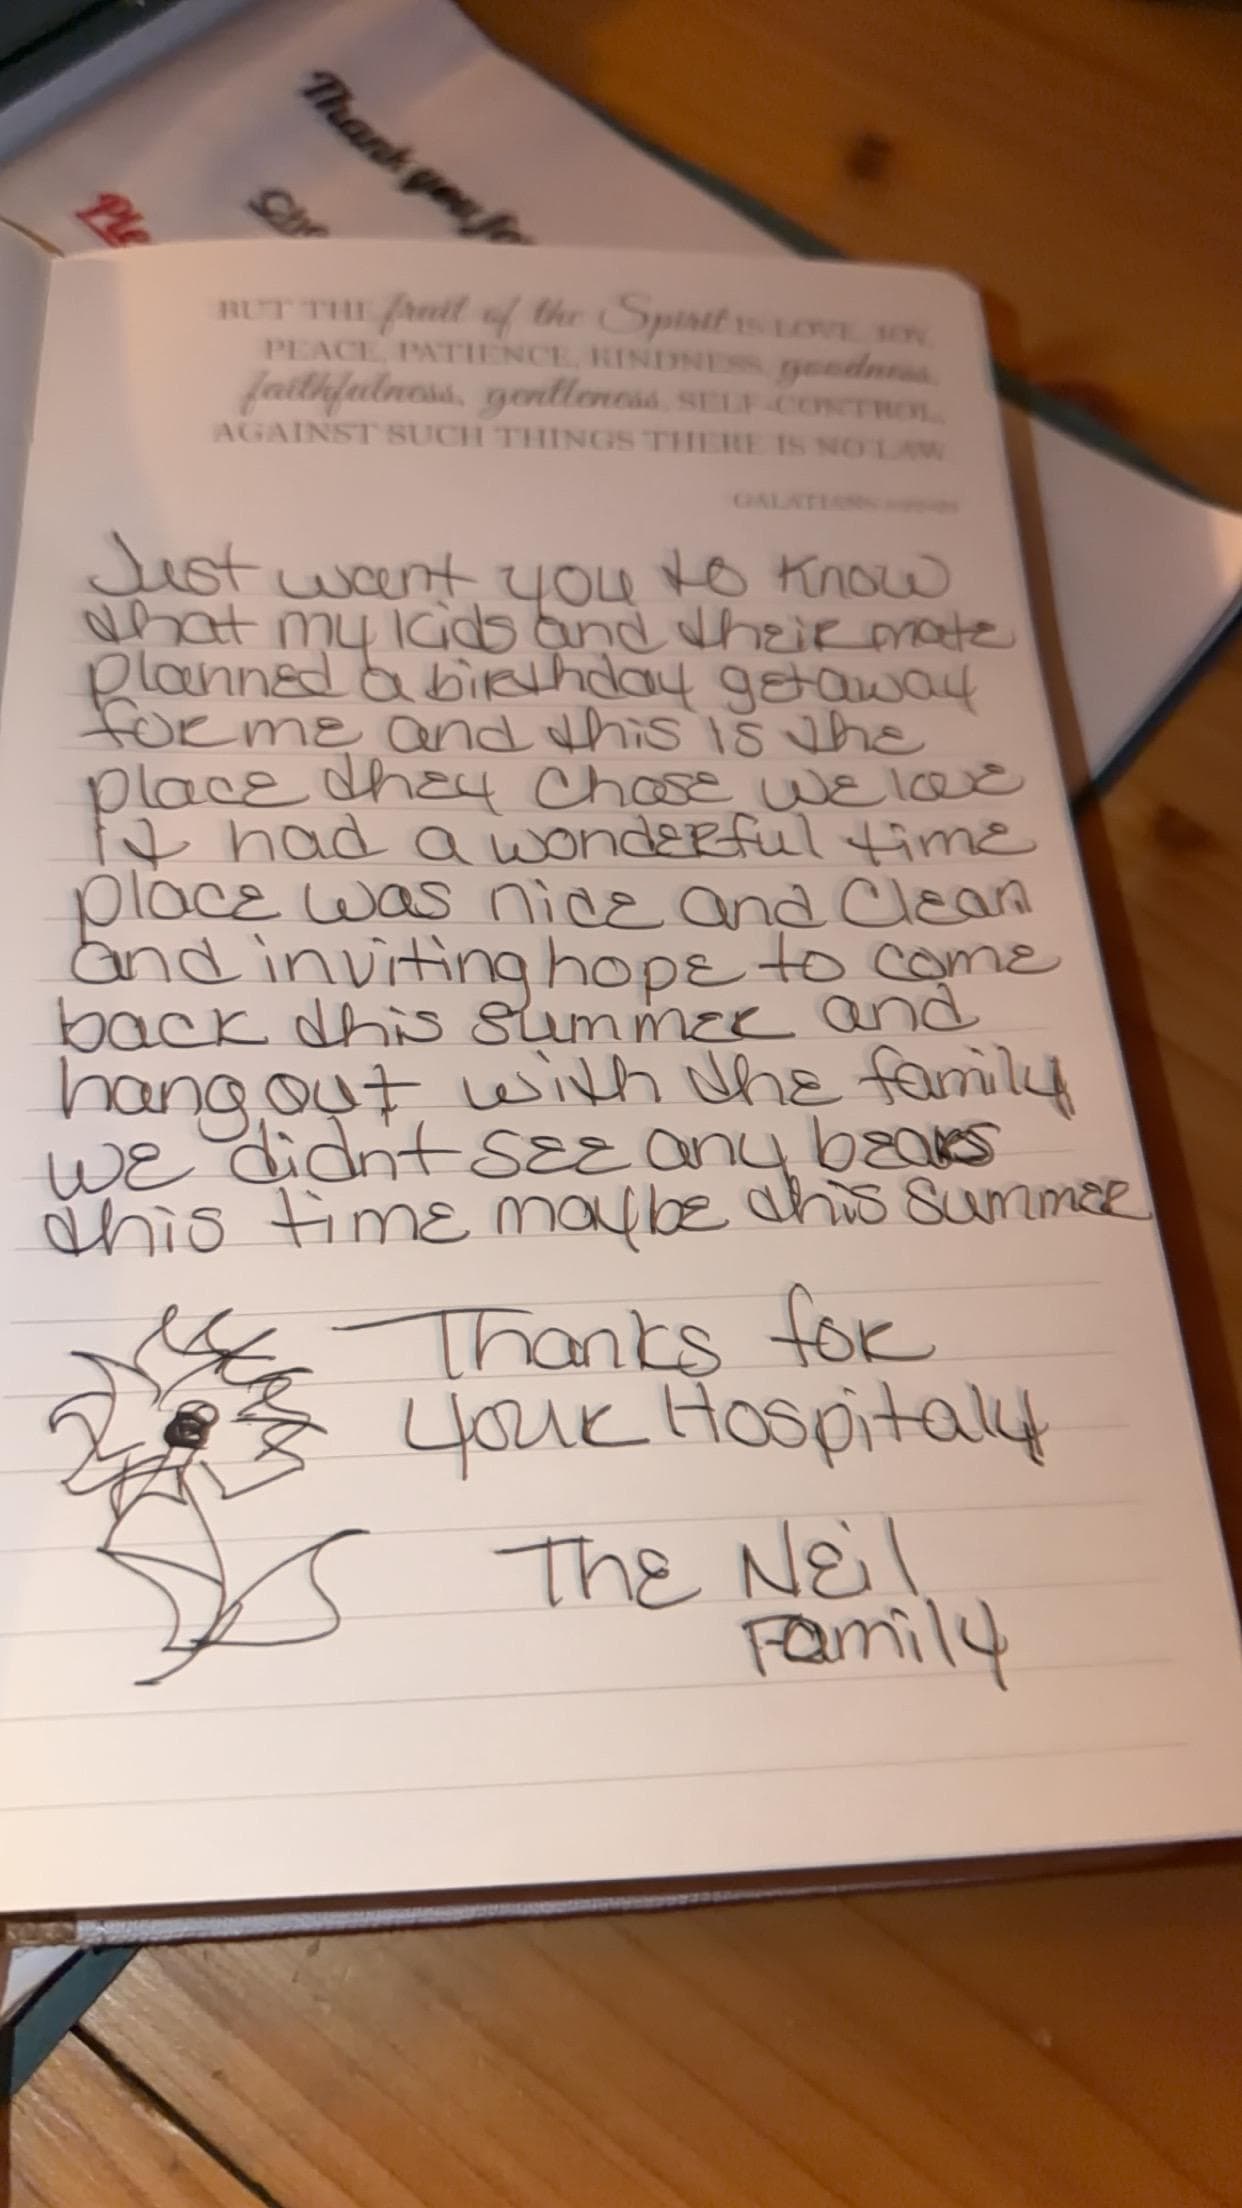 Thank you for
Ple
BUT THE fruit of the Spirit IS LOVE, JOY,
PEACE, PATIENCE, KINDNESS, goodness,
faithfulness, gentleness, SELF-CONTROL,
AGAINST SUCH THINGS THERE IS NO LAW
GALATIANS
Just want you to know
that my kids and their mate
planned a birthday getaway
for me and this is the
place they chose we love
it had a wonderful time
place was nice and clean
and inviting hope to come
back this summer and
hang out with the family
we didnt see any bears
this time maybe this summer
Thanks for
your Hospitaly
The Neil
Family